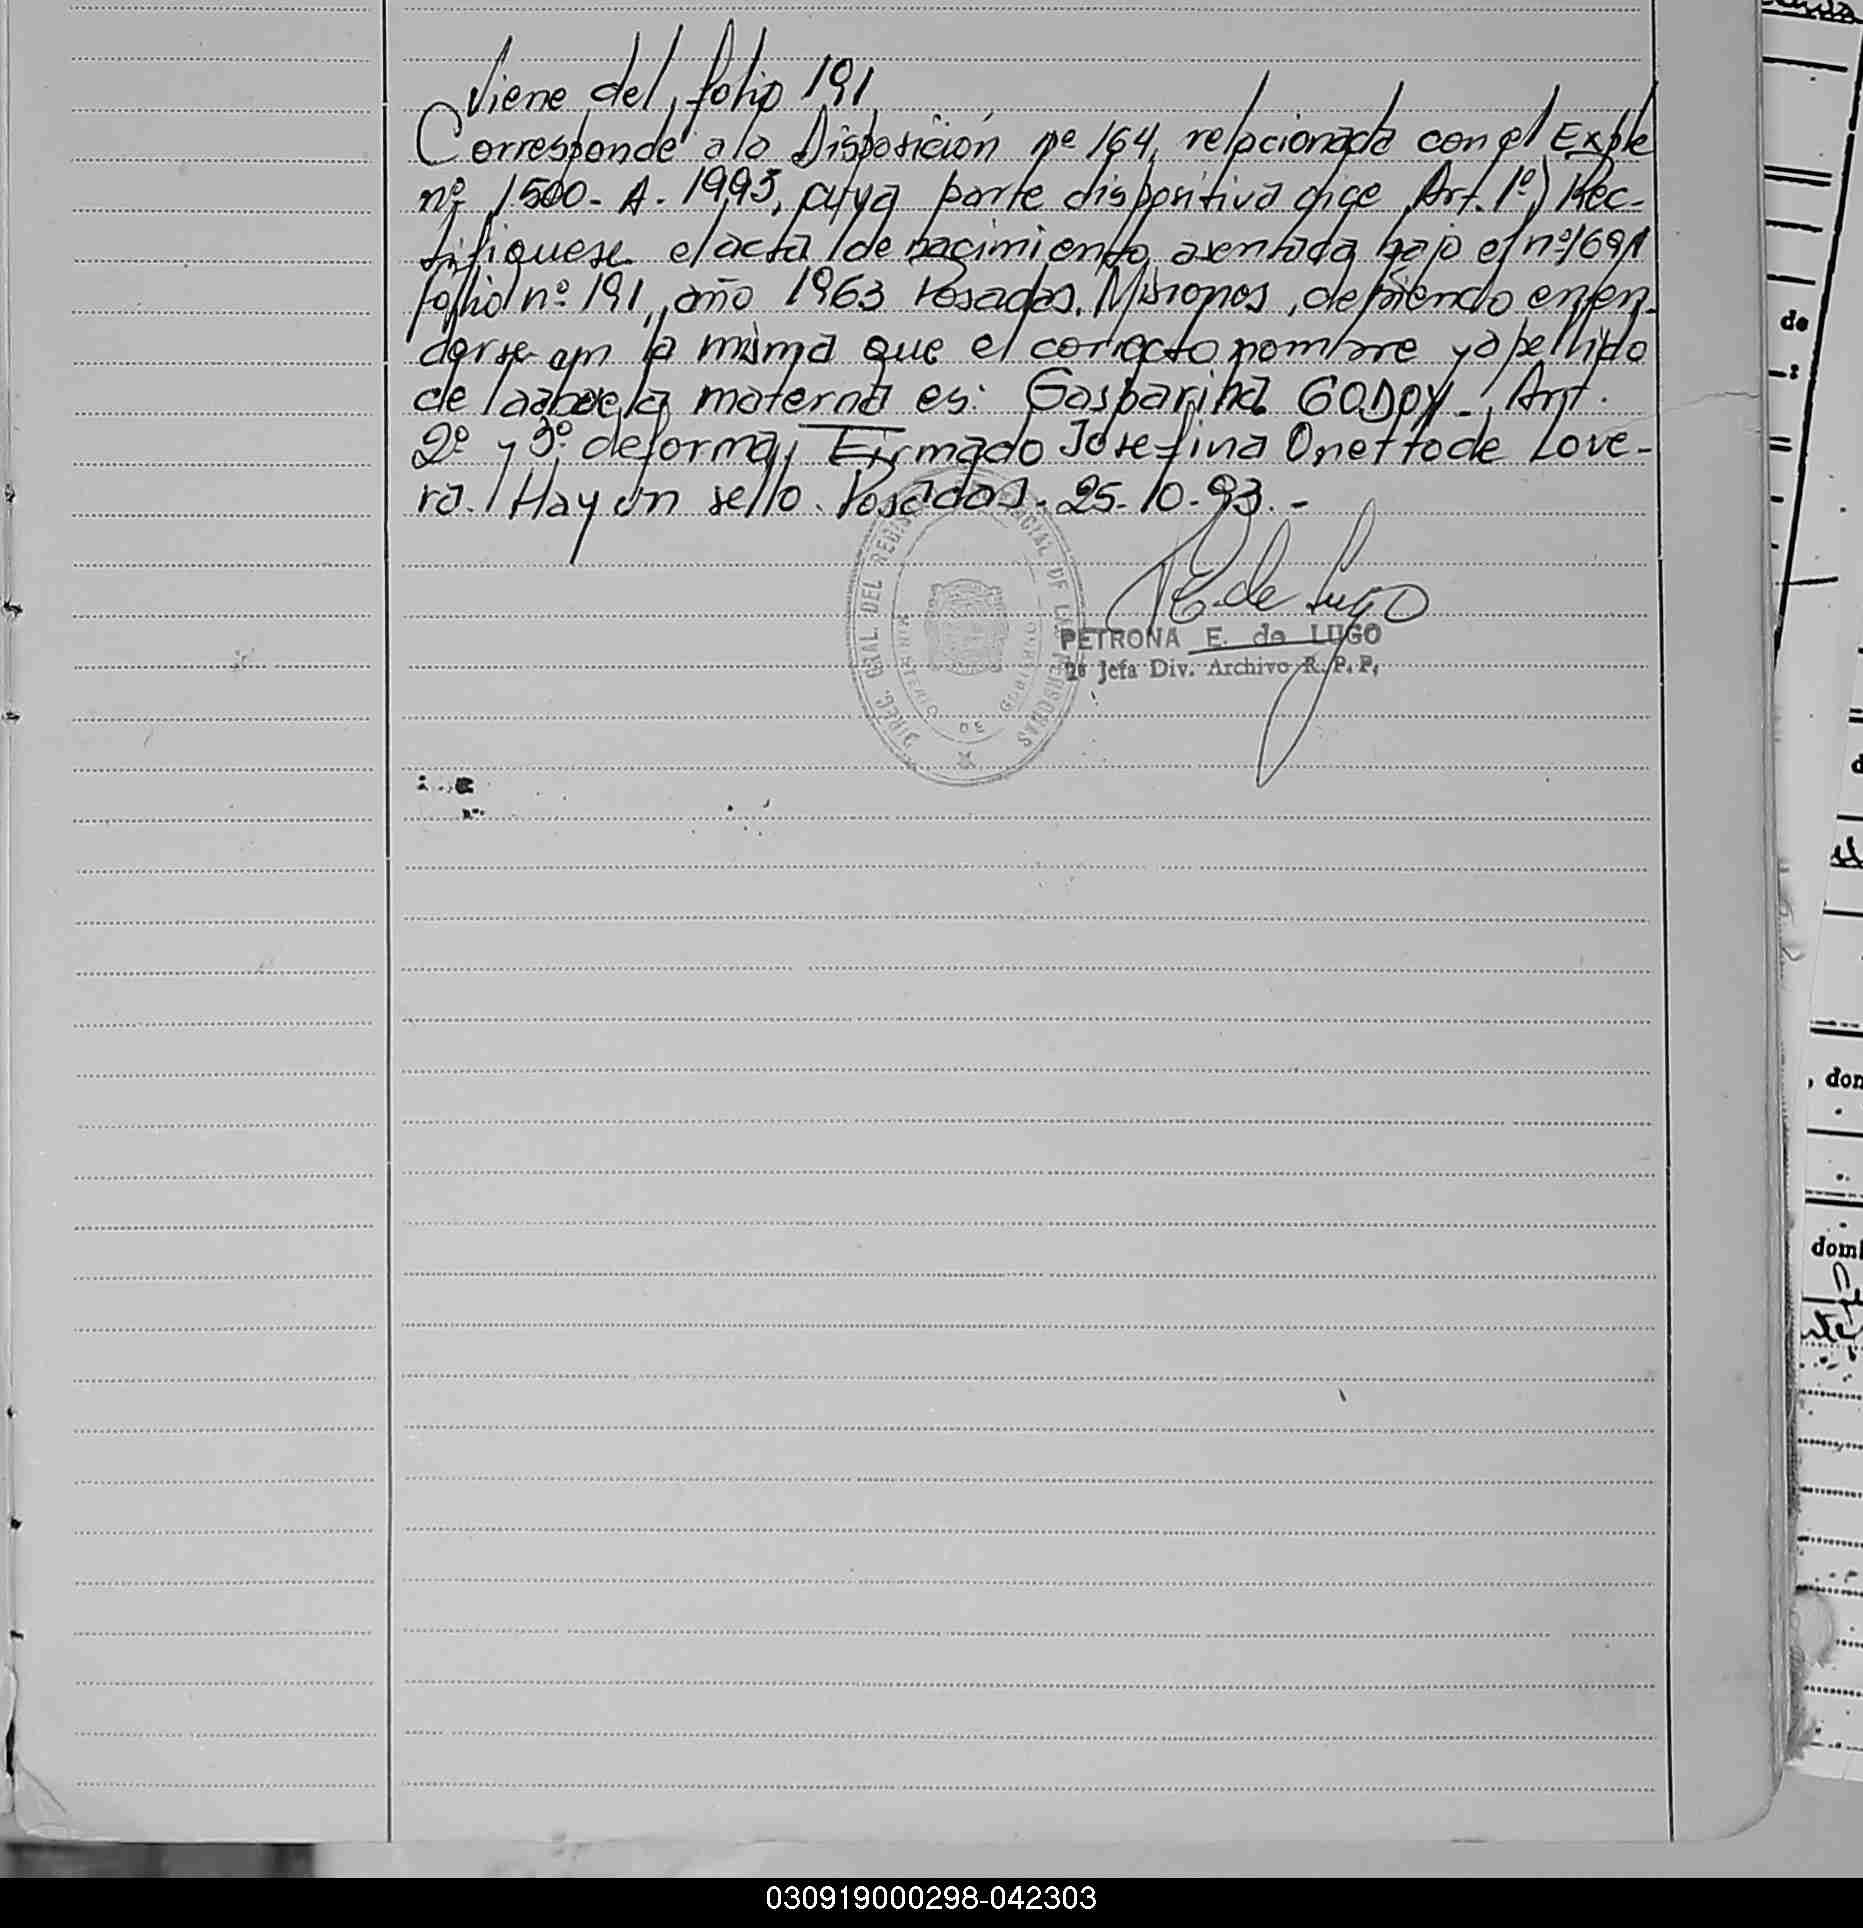 Viene del folio 191
Corresponde a la Disposición nº 164, relacionada con el Expte
nº 1500-A-1993, cuya parte dispositiva dice Art. 1º) Rec-
tifiquese el acta de nacimiento asentada bajo el nº 1691
folio nº 191, año 1963 Posadas, Misiones, debiendo enten-
derse en la misma que el correcto nombre y apellido
de la abuela materna es: Gasparina GODOY-, Art.
2º y 3º de forma, Firmado Josefina Onetto de Love-
ra. Hay un sello. Posadas. 25-10-93.-
E. de Lugo
PETRONA E. de LUGO
2º Jefa Div. Archivo R. P. P.
DIREC. GRAL. DEL REGISTRO PROVINCIAL DE LAS PERSONAS
MINISTERIO DE GOBIERNO
de
, don
domi
030919000298-042303